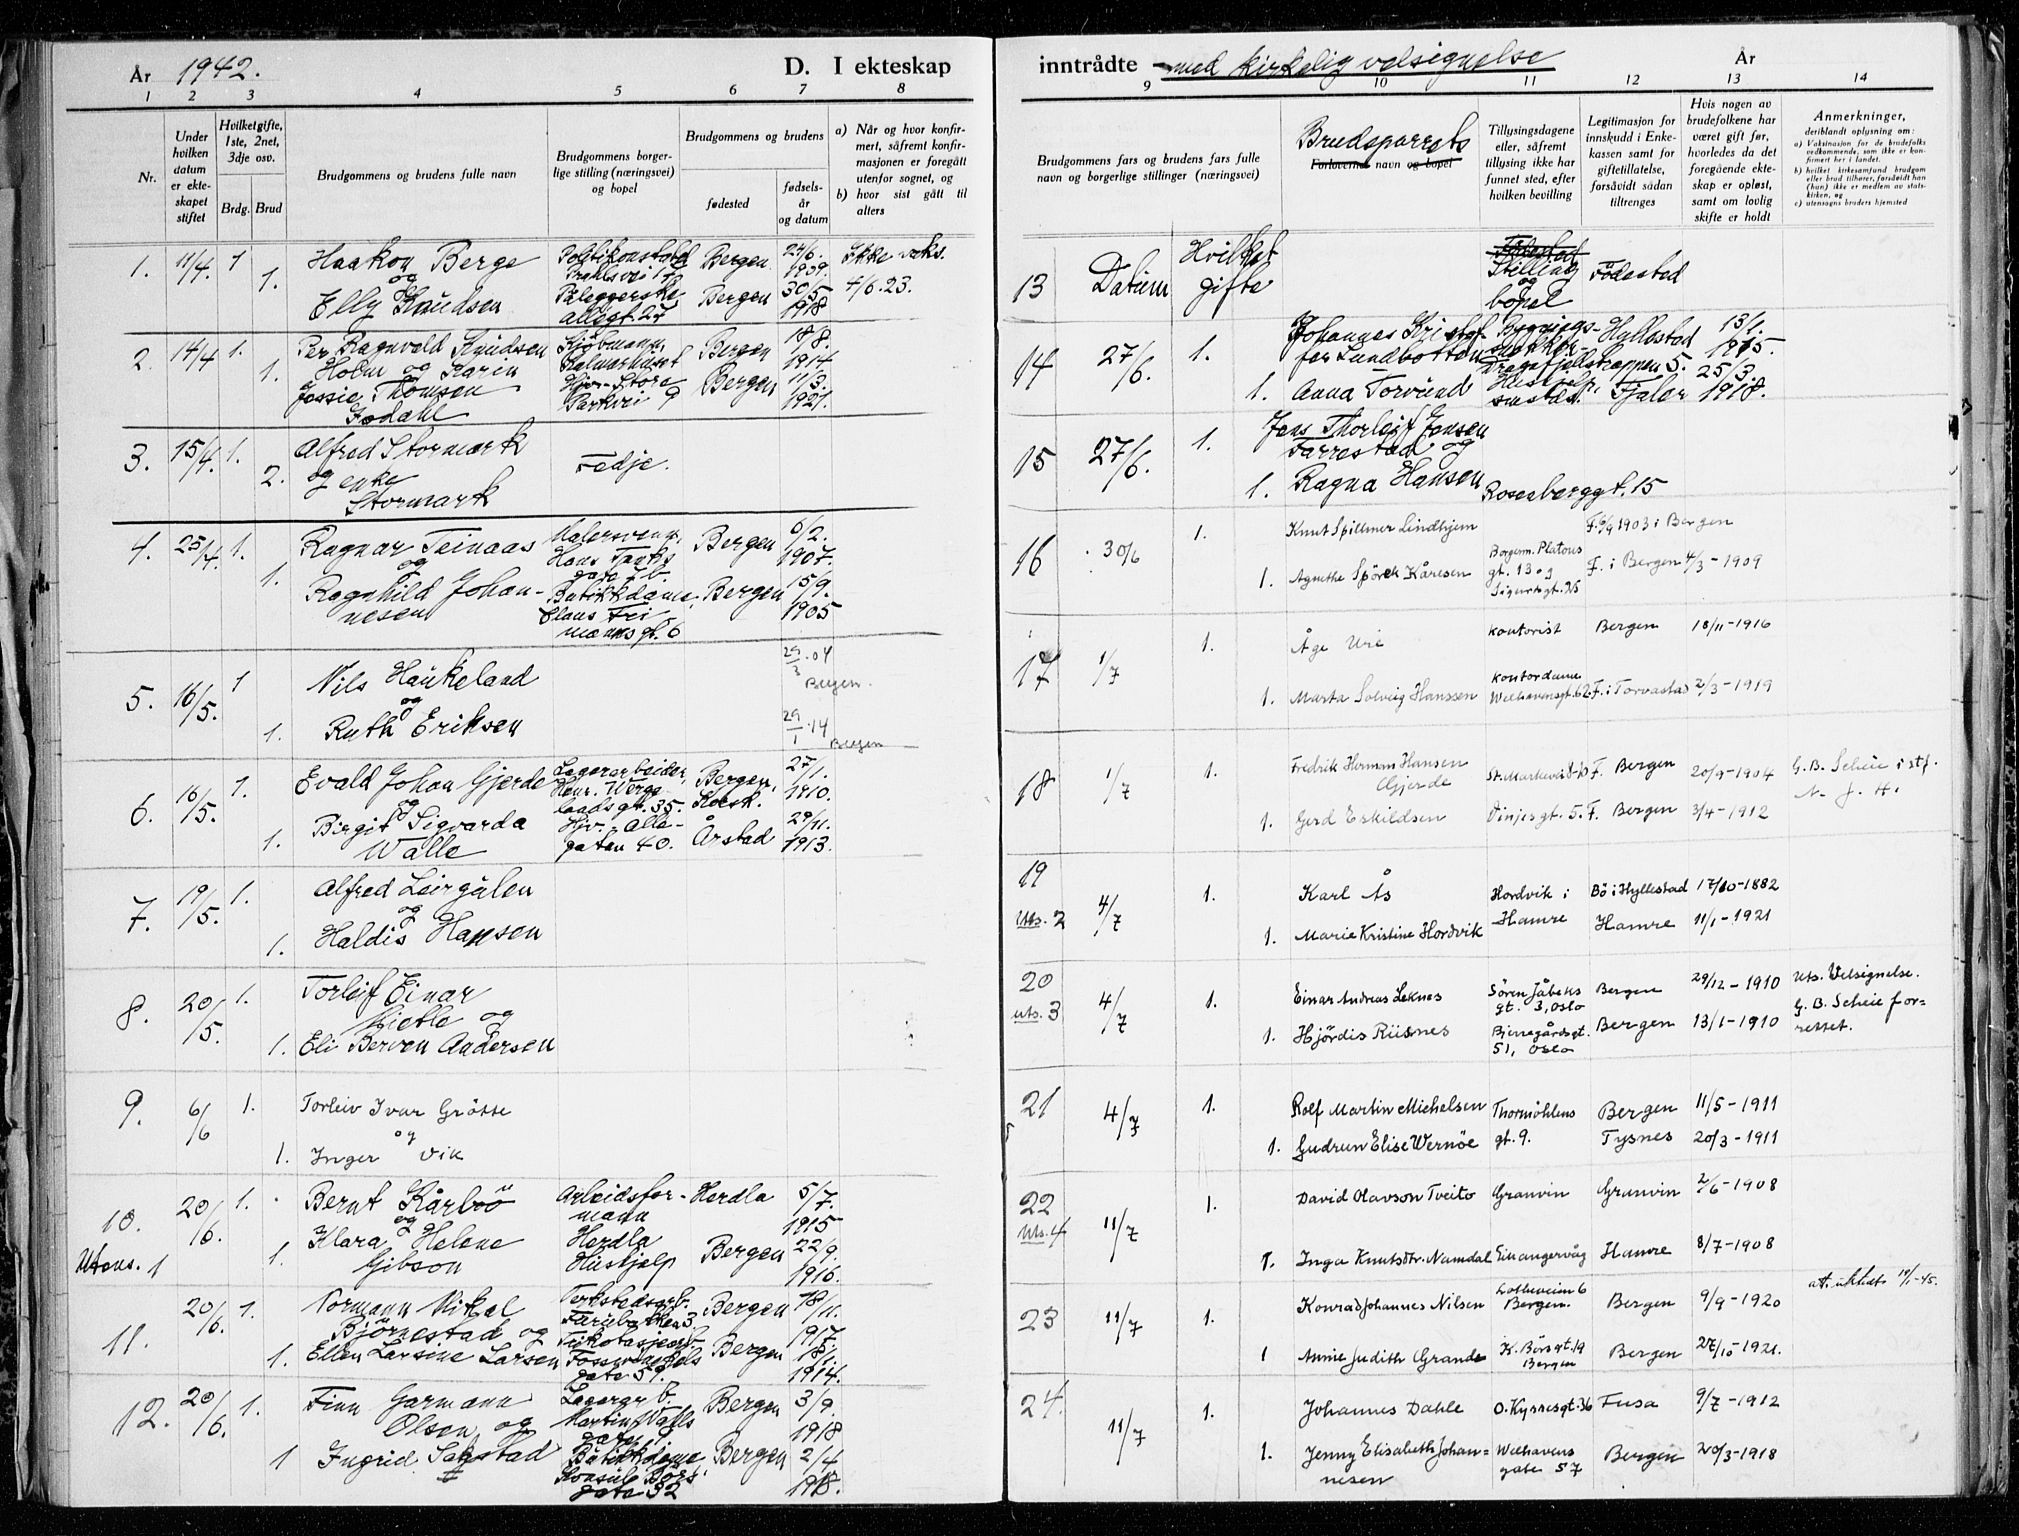 År 1942.
D. I ekteskap
1 2 3 4 5 6 7 8
Nr.
Under hvilken datum er ekteskapet stiftet
Hvilket gifte, 1ste, 2net, 3dje osv.
Brdg. Brud
Brudgommens og brudens fulle navn
Brudgommens borgerlige stilling (næringsvei) og bopel
Brudgommens og brudens
fødested
fødselsår og datum
a) Når og hvor konfirmert, såfremt konfirmasjonen er foregått utenfor sognet, og
b) hvor sist gått til alters
1. 11/4. 1 Haakon Berge Bergen 24/6. 1909. Ikke vaks.
og
1. Elly Knudsen Bergen 30/5 1918 4/6.23.
Allégt. 27
2. 14/4 1. Per Ragnvald Knudsen Kjöbmann, Bergen 18/8. 1914
1. Holm og Karin Kalmarhuset
Jessie Thomsen Hjv. Store Bergen 11/3. 1921.
Isdahl Parkvei 9
3. 15/4. 1. Alfred Stormark
2. og enke Fedje.
Stormark
4. 25/4. 1. Ragnar Teinaas Malersvenn, Bergen 6/2. 1907.
og Hans Tanks gate 7 b.
1. Ragnhild Johannesen Butikkdame, Bergen 15/9. 1905
Claus Frimannsgt. 6
5. 16/5. 1 Nils Haukeland 29/3.04 Bergen.
og
1. Ruth Eriksen 29/1.14 Bergen
6. 16/5. 1. Evald Johan Gjerde Lagerarbeider, Bergen, 27/1. 1910.
og Henr. Wergelandsgt. 35. Korsk.
1. Birgit Sigvarda Hjv. Alle- Årstad 29/11. 1913.
Walle gaten 40.
7. 19/5. 1. Alfred Leirgulen
og
1. Haldis Hansen
8. 20/5. 1. Torleif Einar
Kietle og
1. Eli Berven Andersen
9. 6/6 1. Torleiv Ivar Grötte
og
1. Inger Vik
10. 20/6. 1. Bernt Kårbö Arbeidsformann Herdla 5/7. 1915
og Herdla
Utens. 1 1. Klara Helene Hushjelp Bergen 22/9. 1916.
Gibson
11. 20/6. 1. Normann Mikal Verkstedsarb. Bergen 18/11. 1917.
Björnestad og
1. Ellen Larsine Larsen Trikotasjearb. Bergen 18/1. 1914.
Fosswinckels gate 59.
12. 20/6. 1. Finn Garmann Lagerarb. Bergen 3/9. 1918
Olsen og
1 Ingrid Sagstad Butikkdame Bergen 2/4 1918.
Konsul Börs gate 32
inntrådte med kirkelig velsignelse
År
9 10 11 12 13 14
Brudgommens fars og brudens fars fulle navn og borgerlige stillinger (næringsvei)
Brudeparrets
Forlovernes navn og bopel
Tillysingsdagene eller, såfremt tillysing ikke har funnet sted, efter hvilken bevilling
Legitimasjon for innskudd i Enkekassen samt for giftetillatelse, forsåvidt sådan tiltrenges
Hvis nogen av brudefolkene har været gift før, hvorledes da det foregående ekteskap er opløst, samt om lovlig skifte er holdt
Anmerkninger,
deriblandt oplysning om:
a) Vaksinasjon for de brudefolks vedkommende, som ikke er konfirmert her i landet.
b) hvilket kirkesamfund brudgom eller brud tilhører, forsåvidt han (hun) ikke er medlem av statskirken, og
c) utensogns bruders hjemsted
13 Datum Hvilket gifte Fødested Stilling og bopel Födested
14 27/6. 1. Johannes Kristoffer Lundbotten Hyllestad 13/1. 1915.
1. Anna Torvund Fjaler 25/3. 1918.
15 27/6. 1. Jens Thorleif Jensen
Farrestad og
1. Ragna Hansen Rosenberggt. 15
16 30/6 1. Knut Spillmer Lindhjem F. 6/9 1903 i Bergen
Borgerm. Platous gt. 13 og
1. Agnethe Spörck Kåresen Sigurdsgt. 25 F. i Bergen 4/3-1909
17 1/7 1. Åge Urie kontorist Bergen 18/11-1916
kontordame
1. Marta Solveig Hanssen Welhavensgt. 62 F. i Torvastad 2/3-1919
18 1/7 1. Fredrik Herman Hansen Gjerde F. Bergen 20/9-1904 G. B. Scheie i stf. N. J. H.
1. Gerd Eskildsen Vinjesgt. 5. F. Bergen 3/4-1912
19 4/7 1. Karl Ås Hordvik i Hamre Bö i Hyllestad 17/10-1882
Uts. 2 1. Marie Kristine Hordvik Hamre 11/1-1921
20 4/7 1. Einar Andreas Leknes Sören Jåbeks gt. 3, Oslo Bergen 29/12-1910 Uts. Velsignelse.
uts. 3 1. Hjördis Riisnes Bjerregårdsgt. 51, Oslo Bergen 13/1-1910 G. B. Scheie forrettet.
21 4/7 1. Rolf Martin Michelsen Thormöhlens gt. 9. Bergen 11/5-1911
1. Gudrun Elise Wernöe Tysnes 20/3-1911
22 11/7 1. David Olavson Tveito Granvin Granvin 2/6-1908
Uts. 4 1. Inga Knutsdtr. Namdal Einangervåg Hamre 8/7-1908
att. utstedt 19/1-45.
23 11/7 1. Konrad Johannes Nilsen Lotheveien 6 Bergen. Bergen 9/9-1920
1 Annie Judith Grande K. Börsgt. 19 Bergen Bergen 27/10-1921.
24. 11/7 1. Johannes Dahle O. Kyrresgt. 36 Fusa 9/7-1912
1. Jenny Elisabeth Johannesen Welhavens gate 57 Bergen 20/3-1918